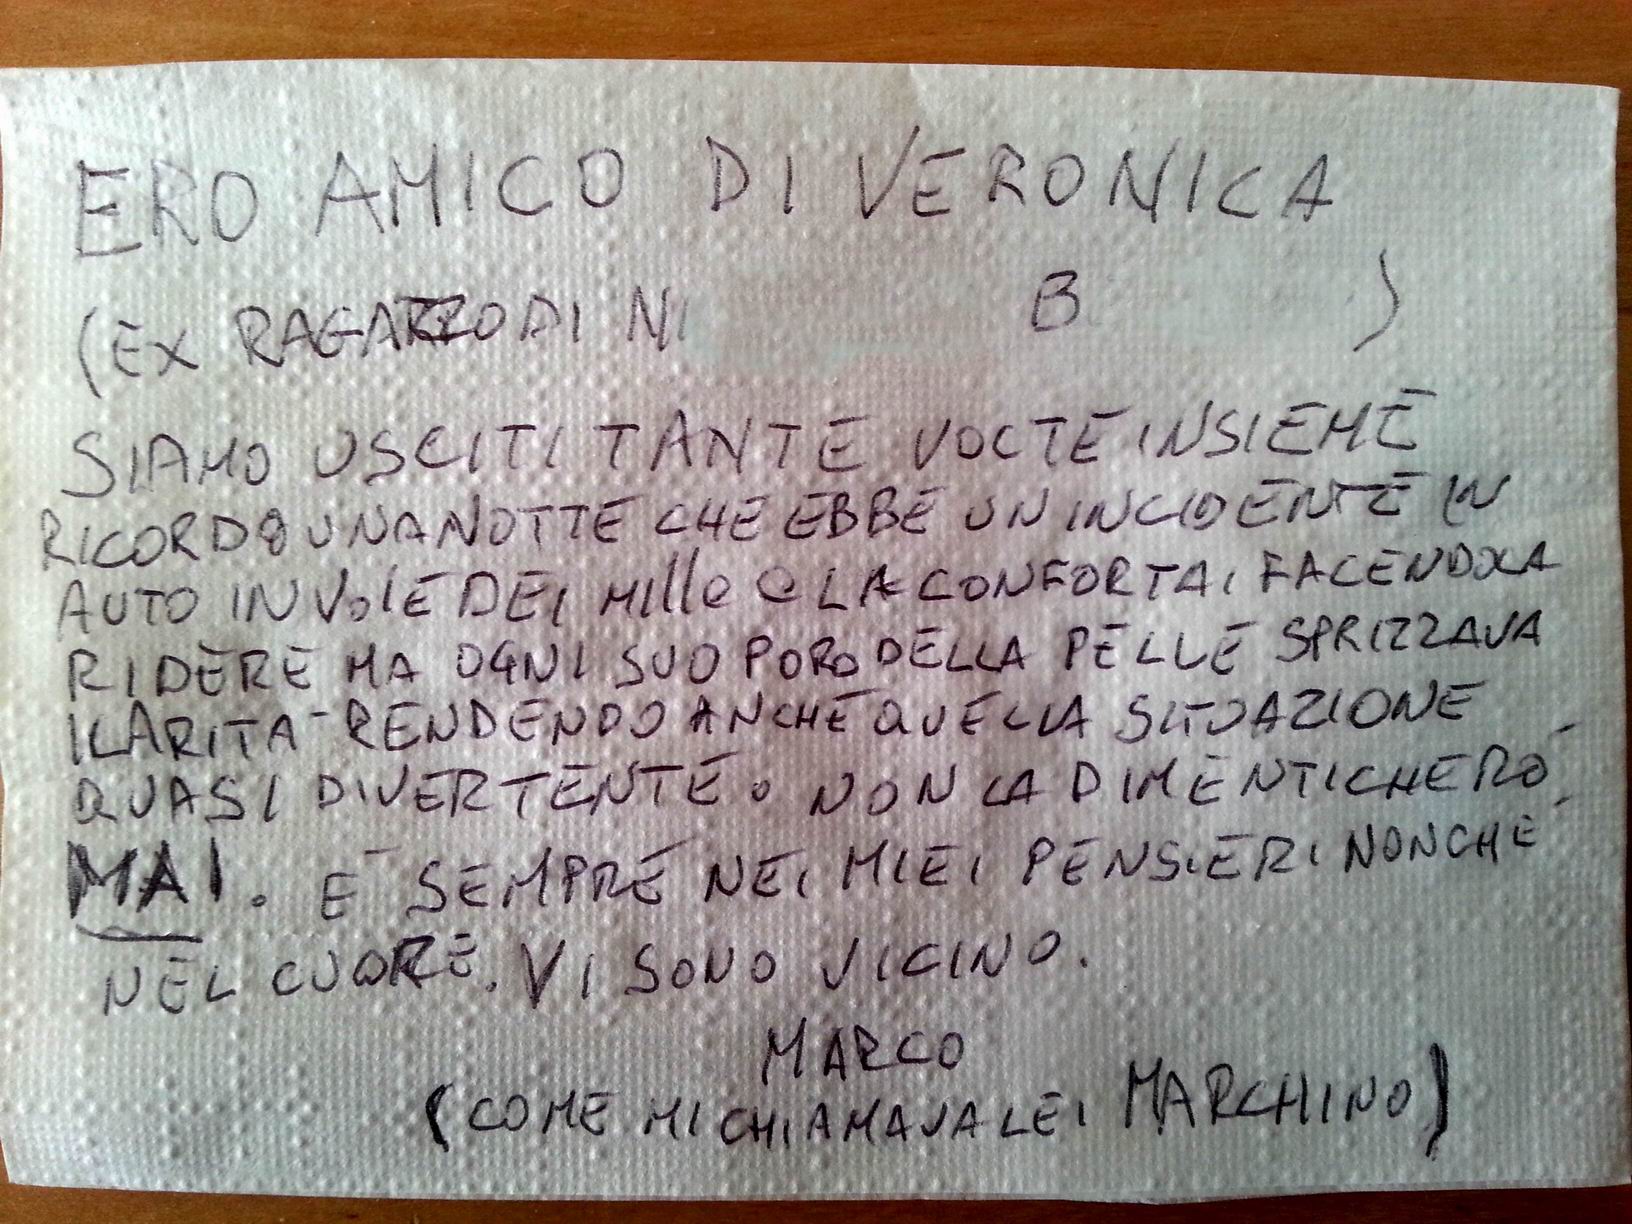 ERO AMICO DI VERONICA
(EX RAGAZZO DI NI B )
SIAMO USCITI TANTE VOLTE INSIEME
RICORDO UNA NOTTE CHE EBBE UN INCIDENTE IN
AUTO IN V.LE DEI MILLE E LA CONFORTAI FACENDOLA
RIDERE MA OGNI SUO PORO DELLA PELLE SPRIZZAVA
ILARITA' RENDENDO ANCHE QUELLA SITUAZIONE
QUASI DIVERTENTE. NON LA DIMENTICHERO'
MAI. E' SEMPRE NEI MIEI PENSIERI NONCHE'
NEL CUORE. VI SONO VICINO.
MARCO
(COME MI CHIAMAVA LEI MARCHINO)